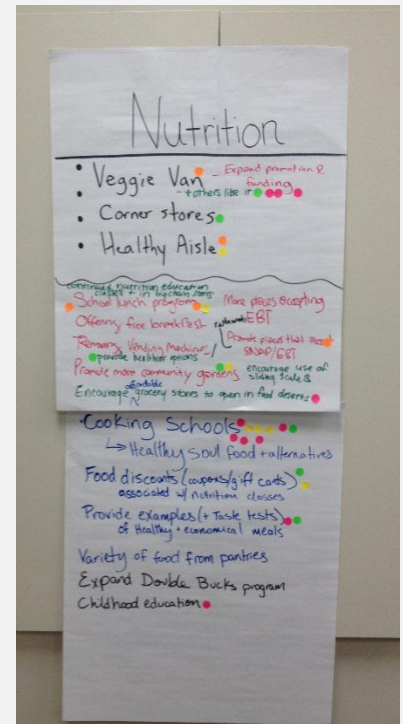 Nutrition
• Veggie Van – Expand promotion &
funding
- + others like it
• Corner stores
• Healthy Aisle
continued nutrition education
classes + in
School lunch programs
More places accepting
EBT
Offering free breakfast
Removing Vending Machines /
Promote places that accept
SNAP/EBT
provide healthier options
Promote more community gardens
encourage use of
sliding scale $
affordable
Encourage ^ grocery stores to open in food deserts
• Cooking Schools
↳ Healthy soul food + alternatives
Food discounts (coupons/gift cards)
associated w/ nutrition classes
Provide examples (+ Taste tests)
of Healthy + economical meals
Variety of food from pantries
Expand Double Bucks program
Childhood education